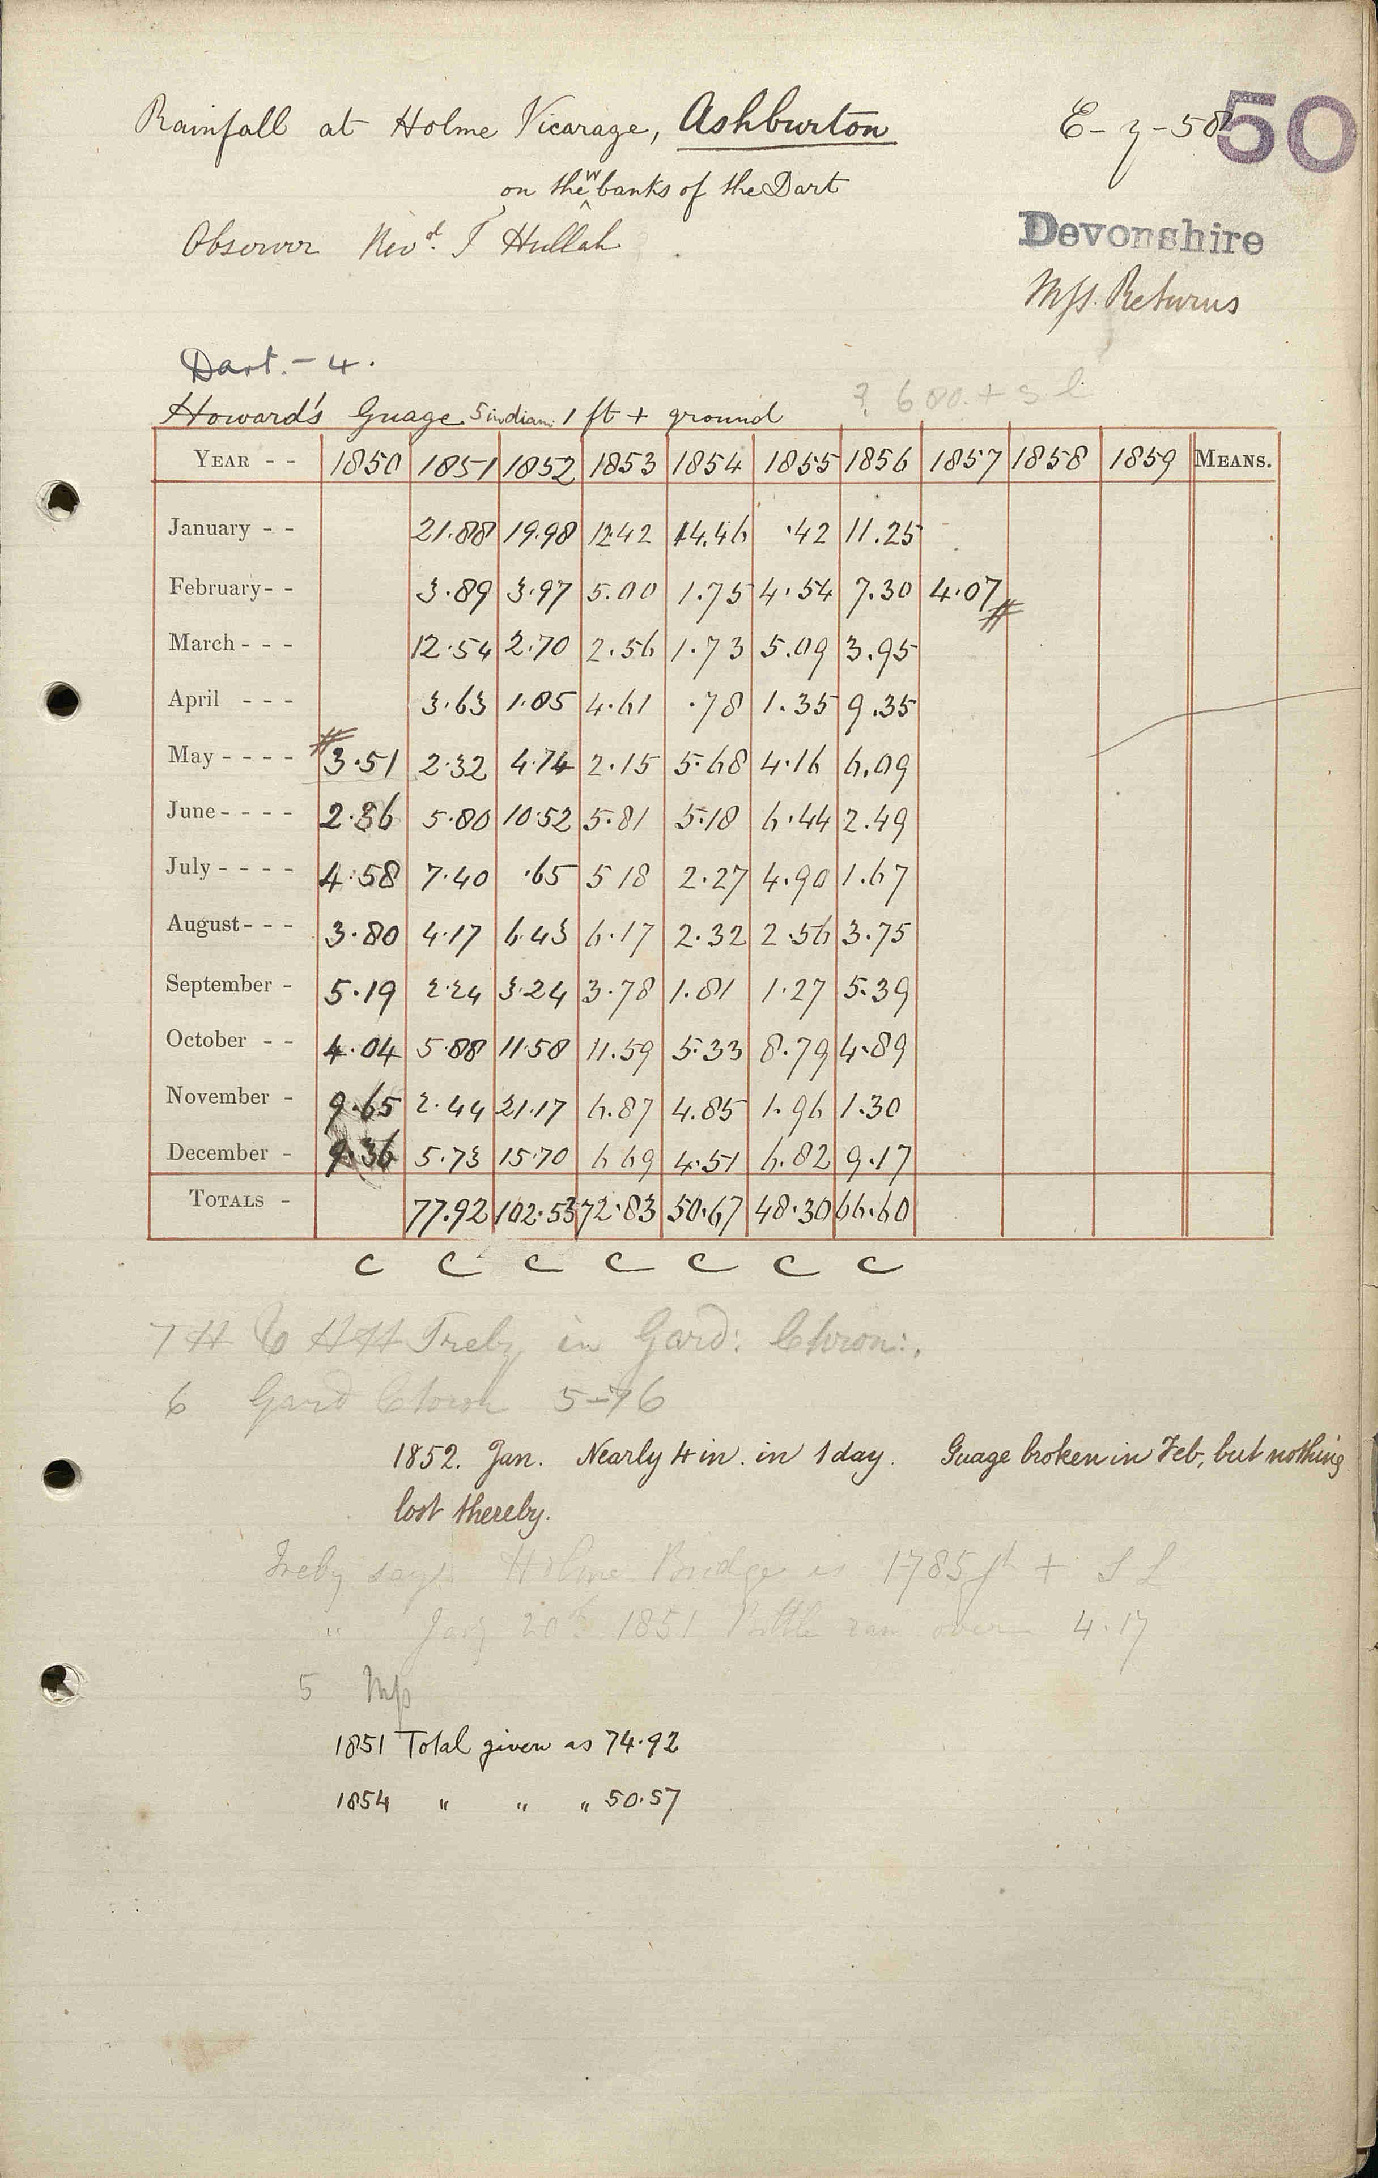 Rainfall at Holme Vicarage, Ashburton
E-7-58
50
on the w banks of the Dart
Observer Revd. T Hullah
Devonshire
Mss. Returns
Dart. - 4.
? 600 + S L
Howard's Guage 5 in diam. 1 ft + ground
YEAR - - 1850 1851 1852 1853 1854 1855 1856 1857 1858 1859 MEANS.
January - - 21.88 19.98 12.42 14.46 .42 11.25
February - - 3.89 3.97 5.00 1.75 4.54 7.30 4.07 #
March - - - 12.54 2.70 2.56 1.73 5.09 3.95
April - - - 3.63 1.85 4.61 .78 1.35 9.35
May - - - - # 3.51 2.32 4.74 2.15 5.68 4.16 6.09
June - - - - 2.36 5.80 10.52 5.81 5.18 6.44 2.49
July - - - - 4.58 7.40 .65 5 18 2.27 4.90 1.67
August - - - 3.80 4.17 6.43 6.17 2.32 2.56 3.75
September - 5.19 2.24 3.24 3.78 1.81 1.27 5.39
October - - 4.04 5.88 11.58 11.59 5.33 8.79 4.89
November - 9.65 2.44 21.17 6.87 4.85 1.96 1.30
December - 9.36 5.73 15.70 6 69 4.51 6.82 9.17
TOTALS - 77.92 102.53 72.83 50.67 48.30 66.60
C C C C C C C
7 H & HH Treby in Gard: Chron:.
6 Gard Chron 5-76
1852. Jan. Nearly 4 in. in 1 day. Guage broken in Feb, but nothing
lost thereby.
Treby says Holme Bridge is 1785 ft + S L
" Jany 20th 1851 Bottle ran over 4.17
5 Mss
1851 Total given as 74.92
1854 " " " 50.57